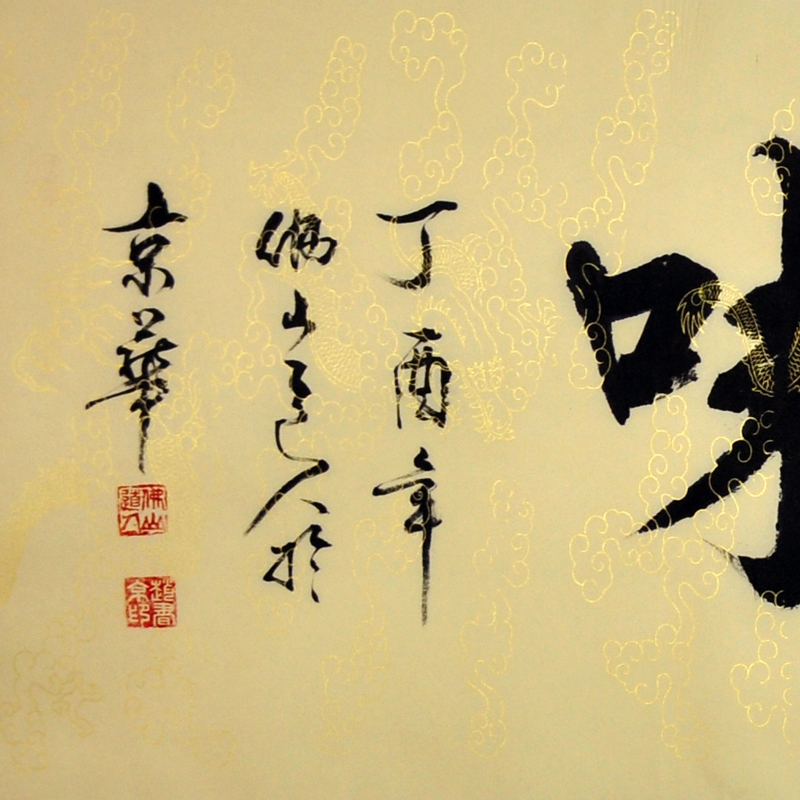 丁酉年
佛山道人於
京華
佛山道人
趙書京印